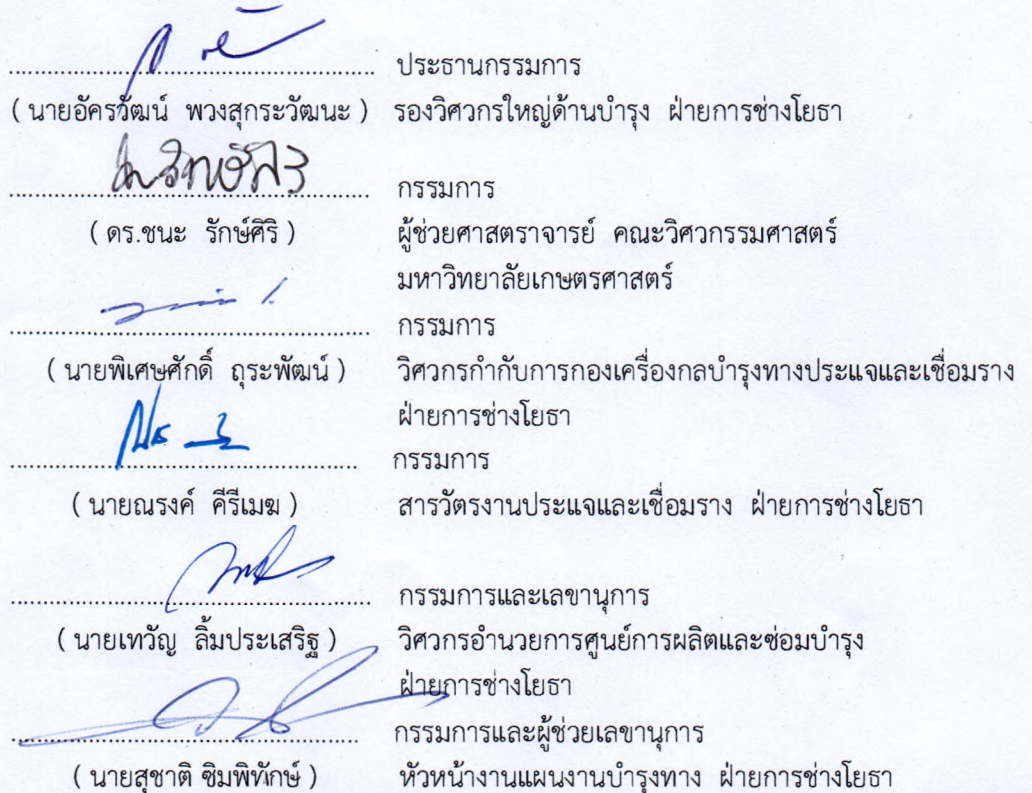 ........................................ ประธานกรรมการ
( นายอัครวัฒน์ พวงสุกระวัฒนะ ) รองวิศวกรใหญ่ด้านบำรุง ฝ่ายการช่างโยธา
........................................ กรรมการ
( ดร.ชนะ รักษ์ศิริ ) ผู้ช่วยศาสตราจารย์ คณะวิศวกรรมศาสตร์
มหาวิทยาลัยเกษตรศาสตร์
........................................ กรรมการ
( นายพิเศษศักดิ์ ถุระพัฒน์ ) วิศวกรกำกับการกองเครื่องกลบำรุงทางประแจและเชื่อมราง
ฝ่ายการช่างโยธา
........................................ กรรมการ
( นายณรงค์ คีรีเมฆ ) สารวัตรงานประแจและเชื่อมราง ฝ่ายการช่างโยธา
........................................ กรรมการและเลขานุการ
( นายเทวัญ ลิ้มประเสริฐ ) วิศวกรอำนวยการศูนย์การผลิตและซ่อมบำรุง
ฝ่ายการช่างโยธา
........................................ กรรมการและผู้ช่วยเลขานุการ
( นายสุชาติ ซิมพิทักษ์ ) หัวหน้างานแผนงานบำรุงทาง ฝ่ายการช่างโยธา